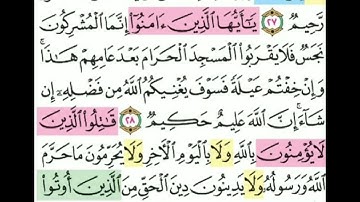 رَّحِيمٌ ٢٧ يَٰٓأَيُّهَا ٱلَّذِينَ ءَامَنُوٓا۟ إِنَّمَا ٱلْمُشْرِكُونَ
نَجَسٌ فَلَا يَقْرَبُوا۟ ٱلْمَسْجِدَ ٱلْحَرَامَ بَعْدَ عَامِهِمْ هَٰذَا ۚ
وَإِنْ خِفْتُمْ عَيْلَةً فَسَوْفَ يُغْنِيكُمُ ٱللَّهُ مِن فَضْلِهِۦٓ إِن
شَآءَ ۚ إِنَّ ٱللَّهَ عَلِيمٌ حَكِيمٌ ٢٨ قَٰتِلُوا۟ ٱلَّذِينَ
لَا يُؤْمِنُونَ بِٱللَّهِ وَلَا بِٱلْيَوْمِ ٱلْءَاخِرِ وَلَا يُحَرِّمُونَ مَا حَرَّمَ
ٱللَّهُ وَرَسُولُهُۥ وَلَا يَدِينُونَ دِينَ ٱلْحَقِّ مِنَ ٱلَّذِينَ أُوتُوا۟